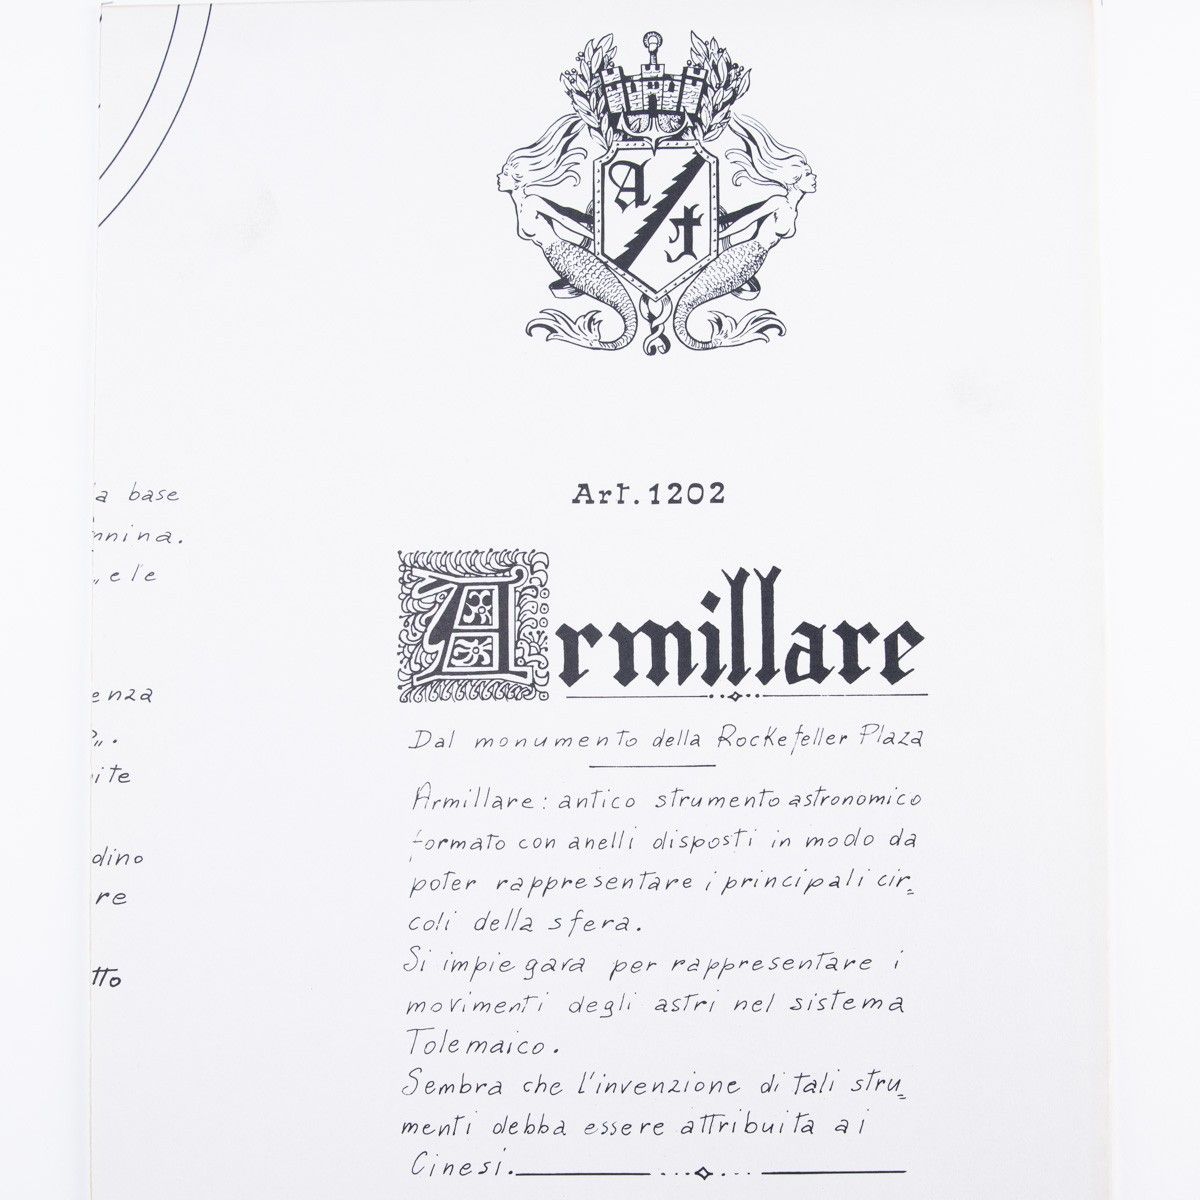 A t
Art. 1202
Armillare
Dal monumento della Rockefeller Plaza
Armillare: antico strumento astronomico
formato con anelli disposti in modo da
poter rappresentare i principali cir=
coli della sfera.
Si impiegava per rappresentare i
movimenti degli astri nel sistema
Tolemaico.
Sembra che l'invenzione di tali stru=
menti debba essere attribuita ai
Cinesi.
a base
nnina.
„ e le
enza
„.
ite
dino
re
tto